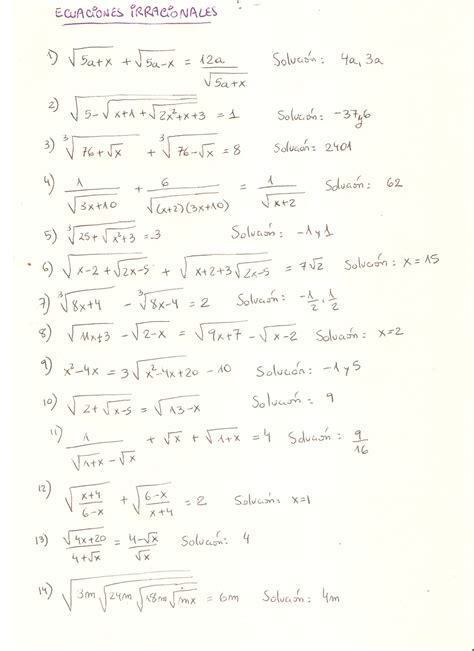 ECUACIONES IRRACIONALES
1) √(5a+x) + √(5a-x) = 12a/√(5a+x) Solución: 4a, 3a
2) √(5-√(x+1+√(2x²+x+3))) = 1 Solución: -37y6
3) ∛(76+√x) + ∛(76-√x) = 8 Solución: 2401
4) 1/√(3x+10) + 6/√((x+2)(3x+10)) = 1/√(x+2) Solución: 62
5) ∛(25+√(x²+3)) = 3 Solución: -1 y 1
6) √(x-2+√(2x-5)) + √(x+2+3√(2x-5)) = 7√2 Solución: x=15
7) ∛(8x+4) - ∛(8x-4) = 2 Solución: -1/2, 1/2
8) √(11x+3) - √(2-x) = √(9x+7) - √(x-2) Solución: x=2
9) x²-4x = 3√(x²-4x+20) - 10 Solución: -1 y 5
10) √(2+√(x-5)) = √(13-x) Solución: 9
11) 1/(√(1+x) - √x) + √x + √(1+x) = 4 Solución: 9/16
12) √((x+4)/(6-x)) + √((6-x)/(x+4)) = 2 Solución: x=1
13) √(4x+20)/(4+√x) = (4-√x)/√x Solución: 4
14) √(3m√(24m√(18m√(mx)))) = 6m Solución: 4m